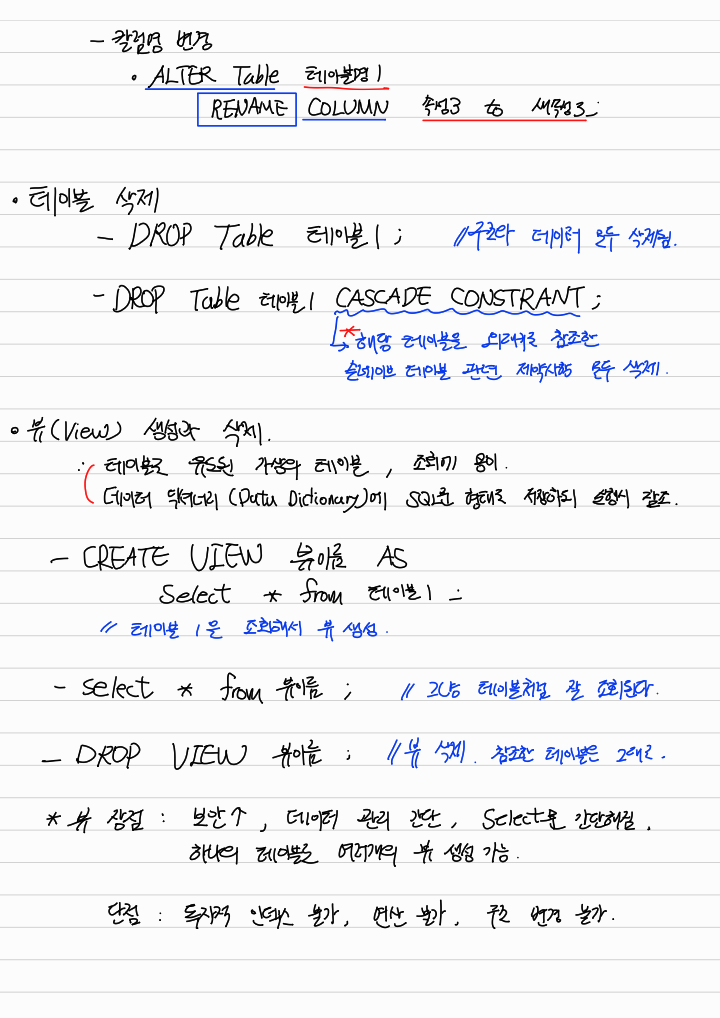 - 칼럼명 변경
• ALTER Table 테이블명1
RENAME COLUMN 속성3 to 새속성3;
• 테이블 삭제
- DROP Table 테이블1 ; // 구조와 데이터 모두 삭제됨.
- DROP Table 테이블1 CASCADE CONSTRANT ;
* 해당 테이블을 외래키로 참조한
슬레이브 테이블 관련 제약사항 모두 삭제.
• 뷰(View) 생성과 삭제.
: 테이블로 유도된 가상의 테이블, 조회에 용이.
데이터 딕셔너리 (Data Dictionary)에 SQL문 형태로 저장하되 실행시 참조.
- CREATE VIEW 뷰이름 AS
Select * from 테이블1 ;
// 테이블 1을 조회해서 뷰 생성.
- select * from 뷰이름 ; // 그냥 테이블처럼 잘 조회된다.
- DROP VIEW 뷰이름 ; // 뷰 삭제. 참조한 테이블은 그대로.
* 뷰 장점 : 보안↑, 데이터 관리 간단, Select문 간단해짐.
하나의 테이블로 여러개의 뷰 생성 가능.
단점 : 독자적 인덱스 불가, 연산 불가, 구조 변경 불가.